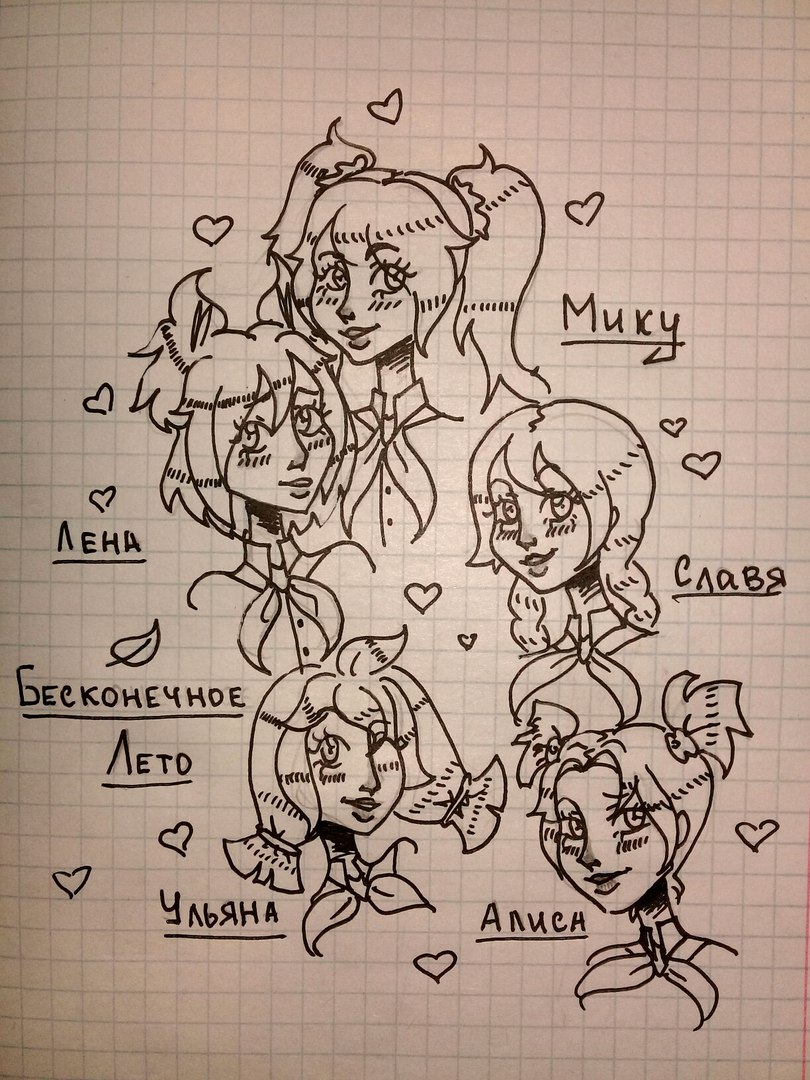 Мику
Лена
Славя
Бесконечное
Лето
Ульяна
Алиса